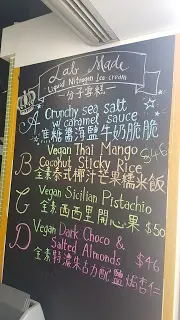 Lab Made
Liquid Nitrogen Ice-cream
分子雪糕
A Crunchy sea salt
w caramel sauce
焦糖醬海鹽牛奶脆脆
Vegan Thai Mango $46
B Coconut Sticky Rice
全素泰式椰汁芒果糯米飯
C Vegan Sicilian Pistachio
全素西西里開心果 $50
D Vegan Dark Choco &
Salted Almonds $46
全素特濃朱古力配鹽焗杏仁